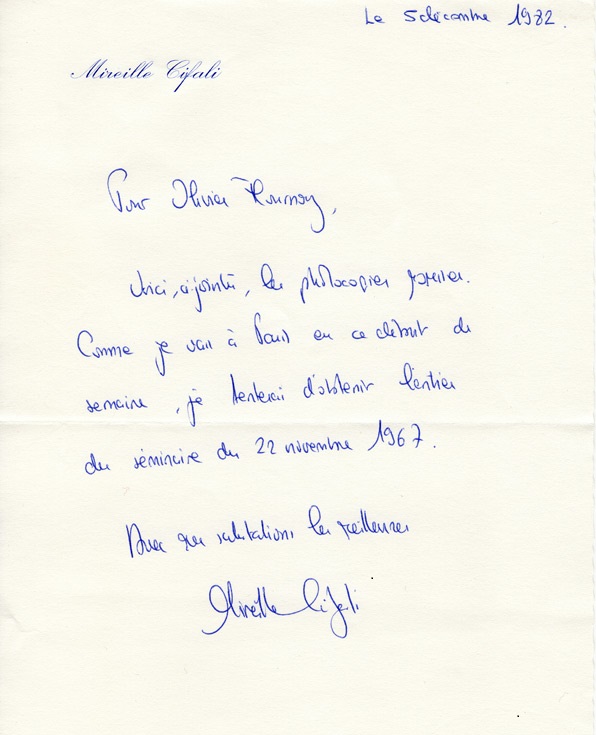 Le 5 décembre 1982.
Mireille Cifali
Pour Olivier Flournoy,
Voici, ci-jointes, les photocopies promises.
Comme je vais à Paris en ce début de
semaine, je tenterai d'obtenir l'entier
du séminaire du 22 novembre 1967.
Avec mes salutations les meilleures
Mireille Cifali